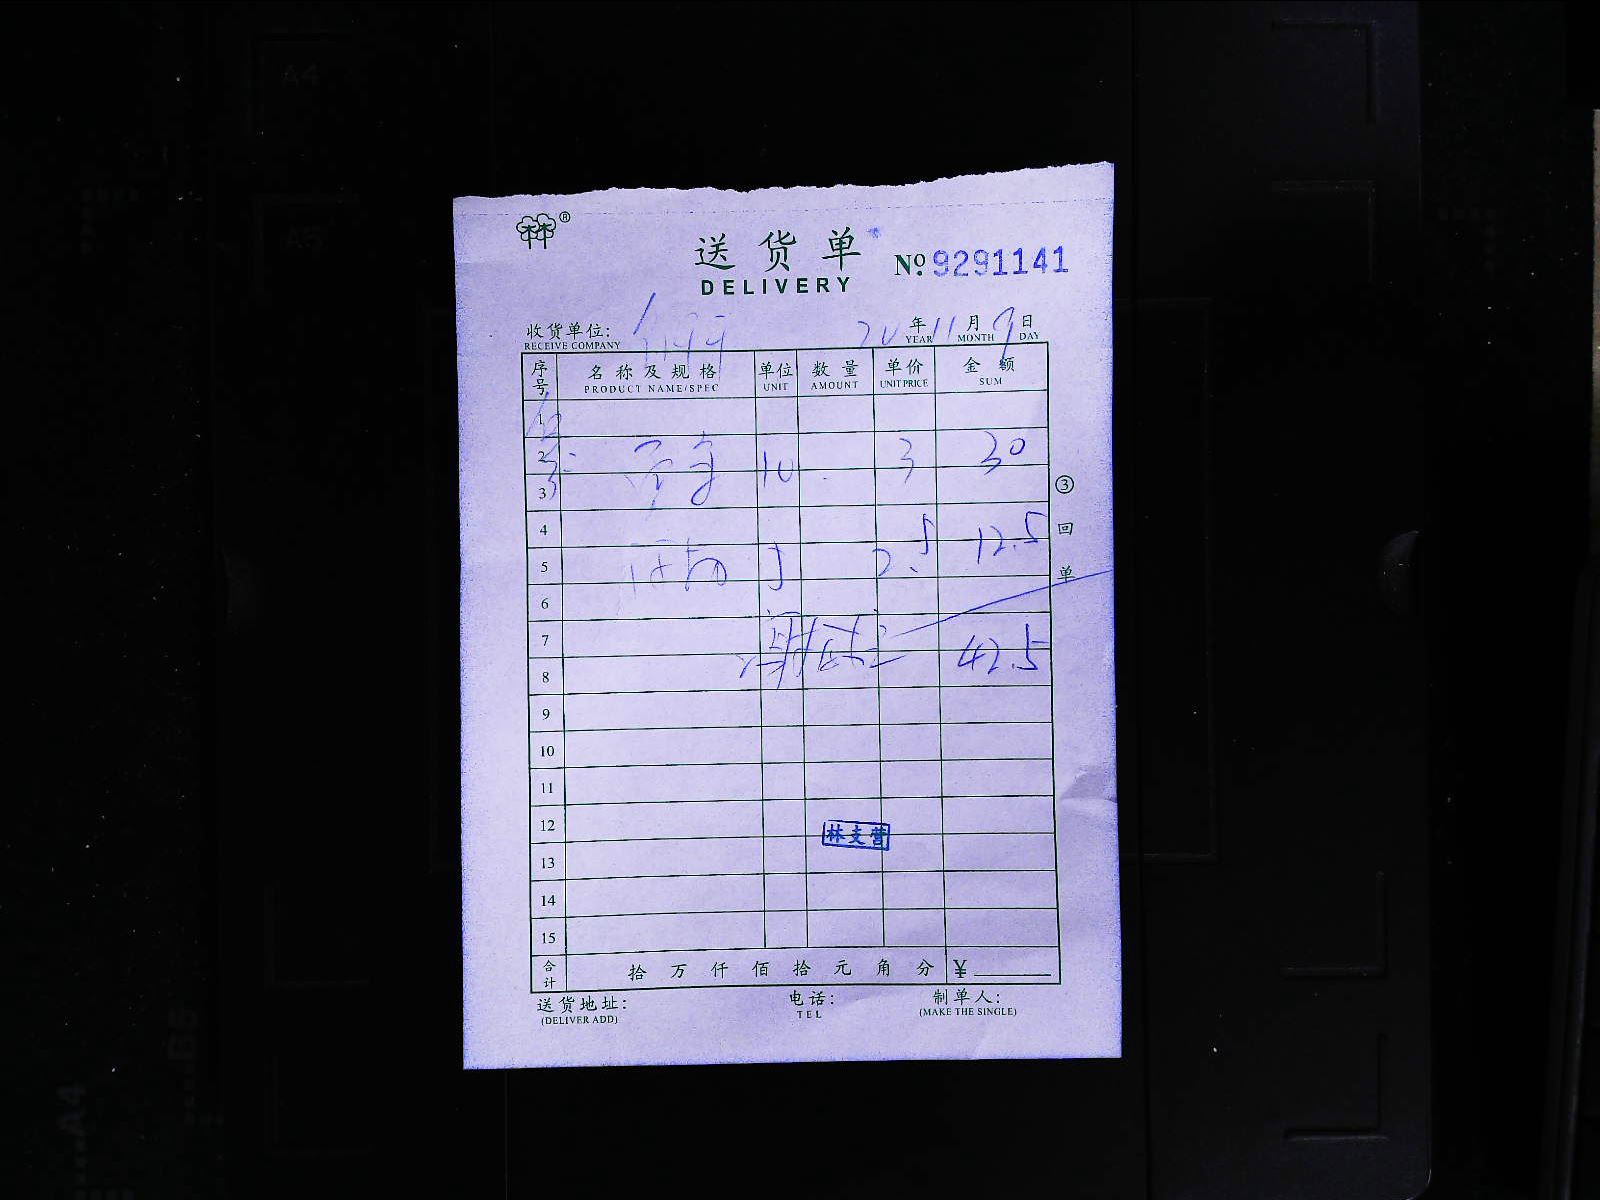 林®
送货单
DELIVERY
№ 9291141
收货单位:
RECEIVE COMPANY
年 11 月 9 日
YEAR MONTH DAY
序号 名称及规格 单位 数量 单价 金额
PRODUCT NAME/SPEC UNIT AMOUNT UNIT PRICE SUM
1
2 10 3 30
3
4
5 5 2.5 12.5
6
7
8 42.5
9
10
11
12
林支营
13
14
15
合计 拾 万 仟 佰 拾 元 角 分 ¥
③回单
送货地址: 电话: 制单人:
(DELIVER ADD) TEL (MAKE THE SINGLE)
A4
A5
B5
A4